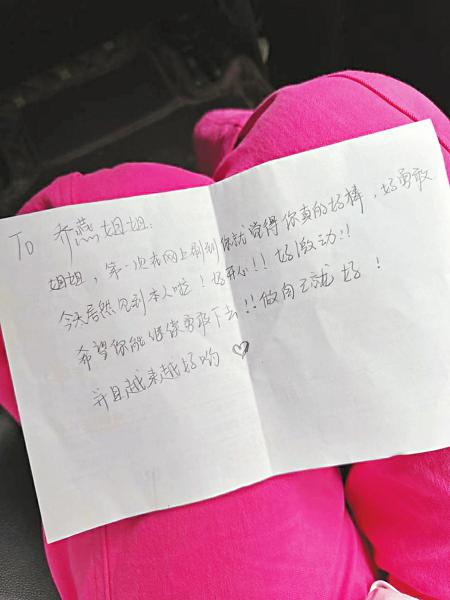 To 乔燕姐姐:
姐姐，第一次在网上刷到你就觉得你真的好棒，好勇敢
今天居然见到本人啦！好开心!! 好激动!!
希望你能继续勇敢下去!!做自己就好！
并且越来越好哟 ♡